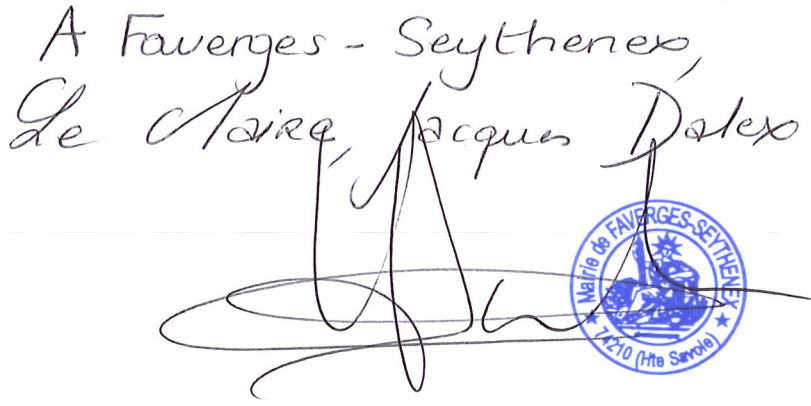 A Faverges - Seythenex,
Le Maire, Jacques Dalex
Mairie de FAVERGES-SEYTHENEX
★ 74210 (Hte Savoie) ★